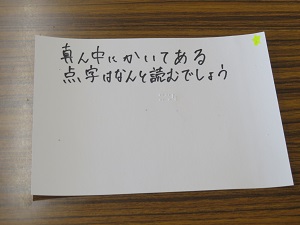 真ん中にかいてある
点字はなんと読むでしょう